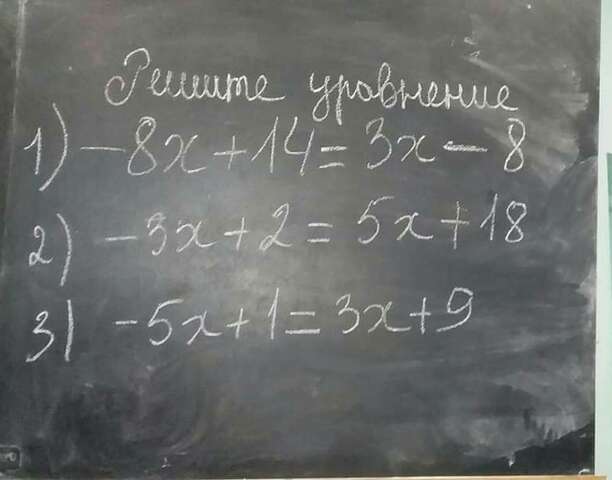 Решите уровнение
1) -8x+14=3x-8
2) -3x+2=5x+18
3) -5x+1=3x+9